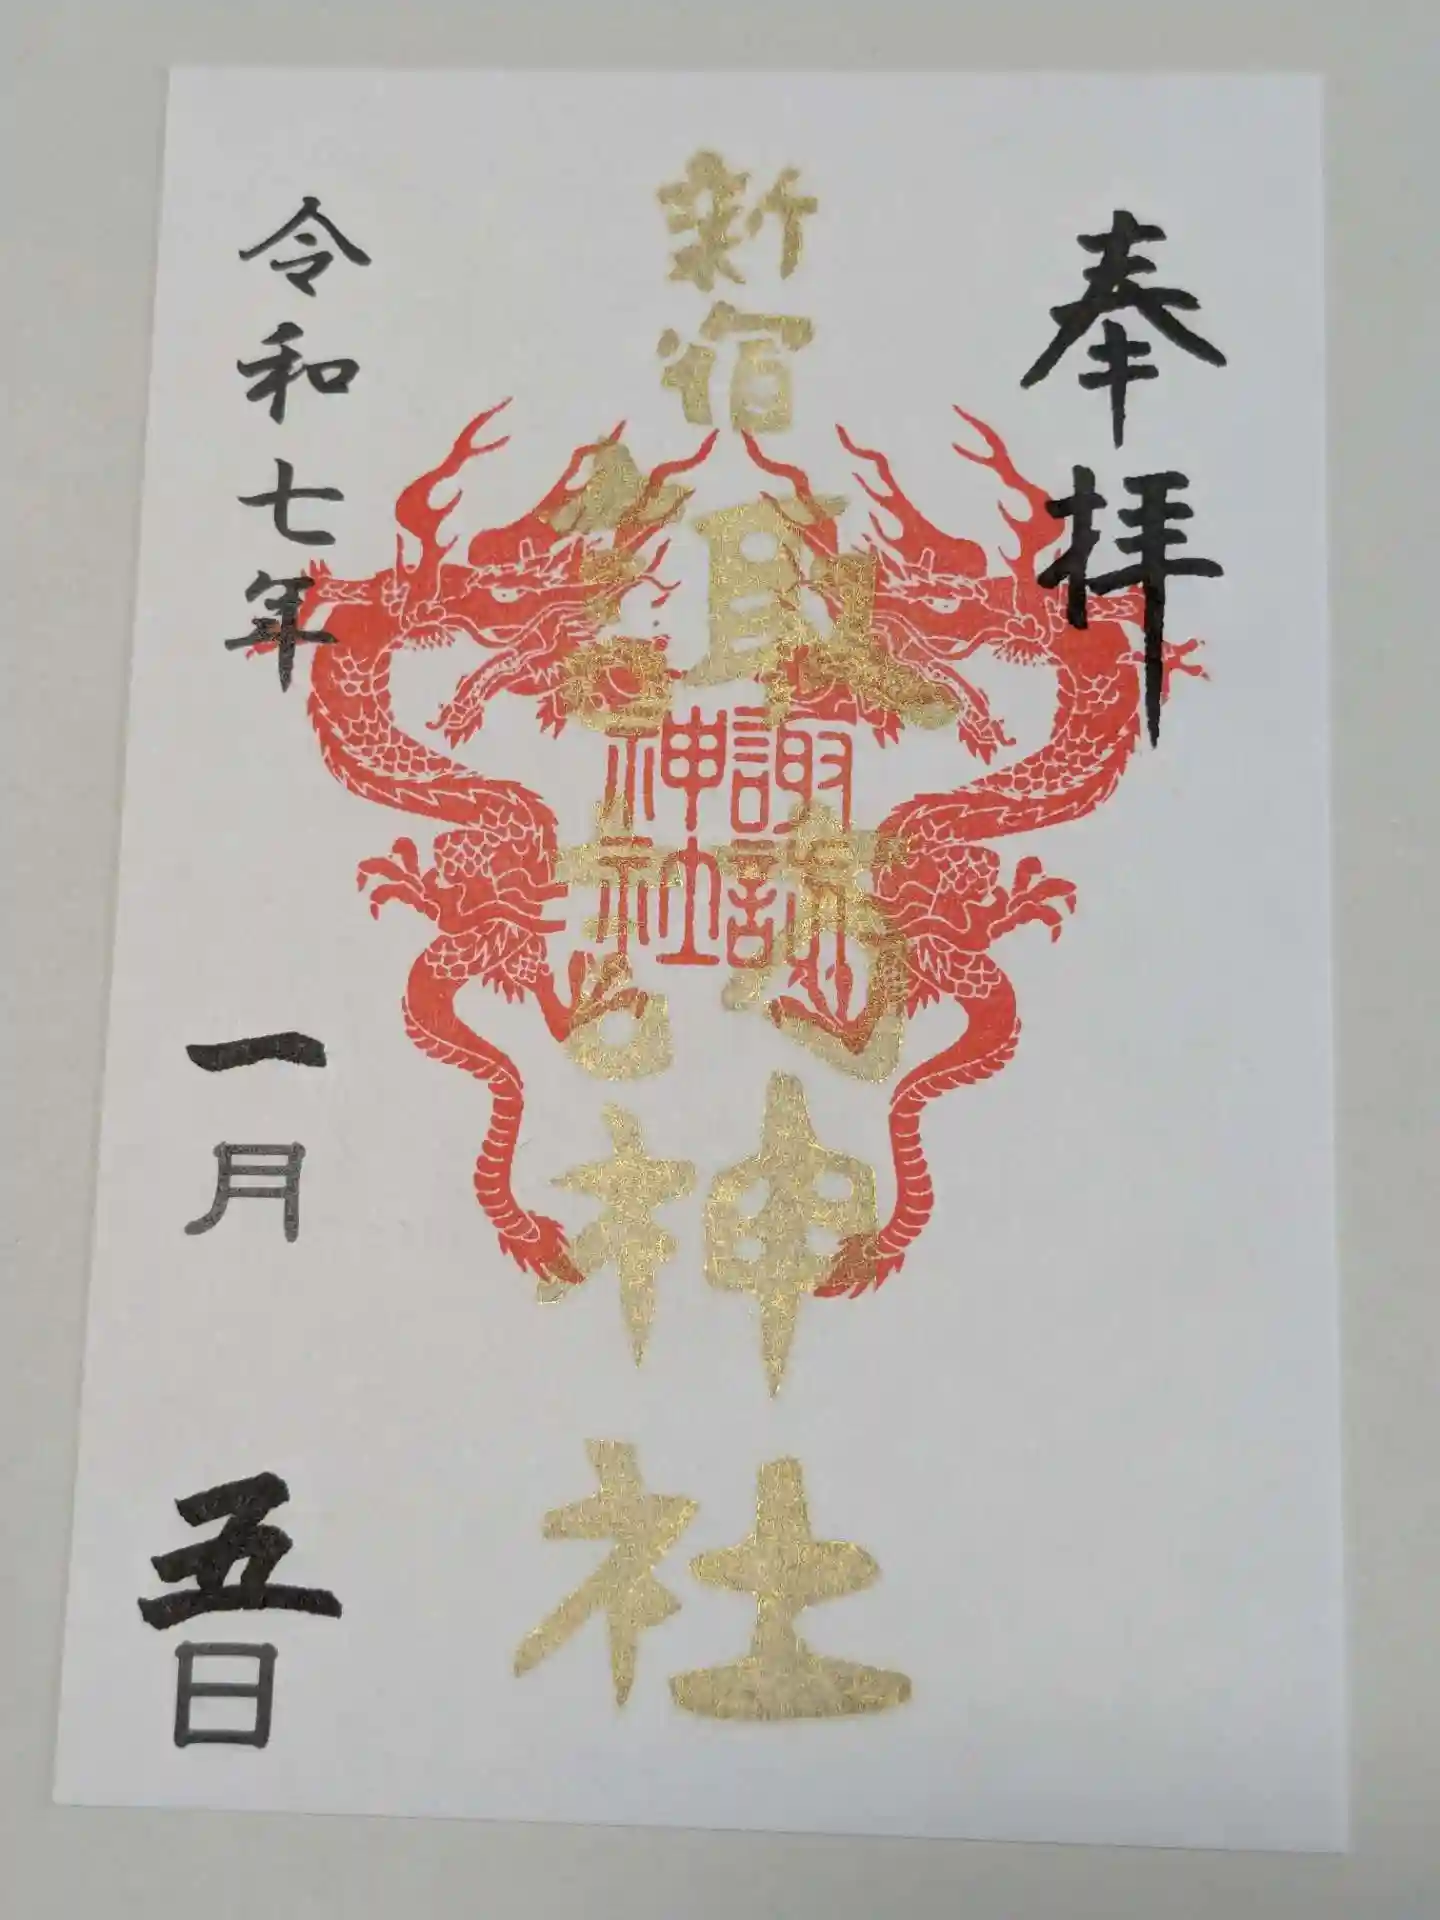 奉拝
新宿
諏訪神社
諏訪
神社
令和七年
一月
五日